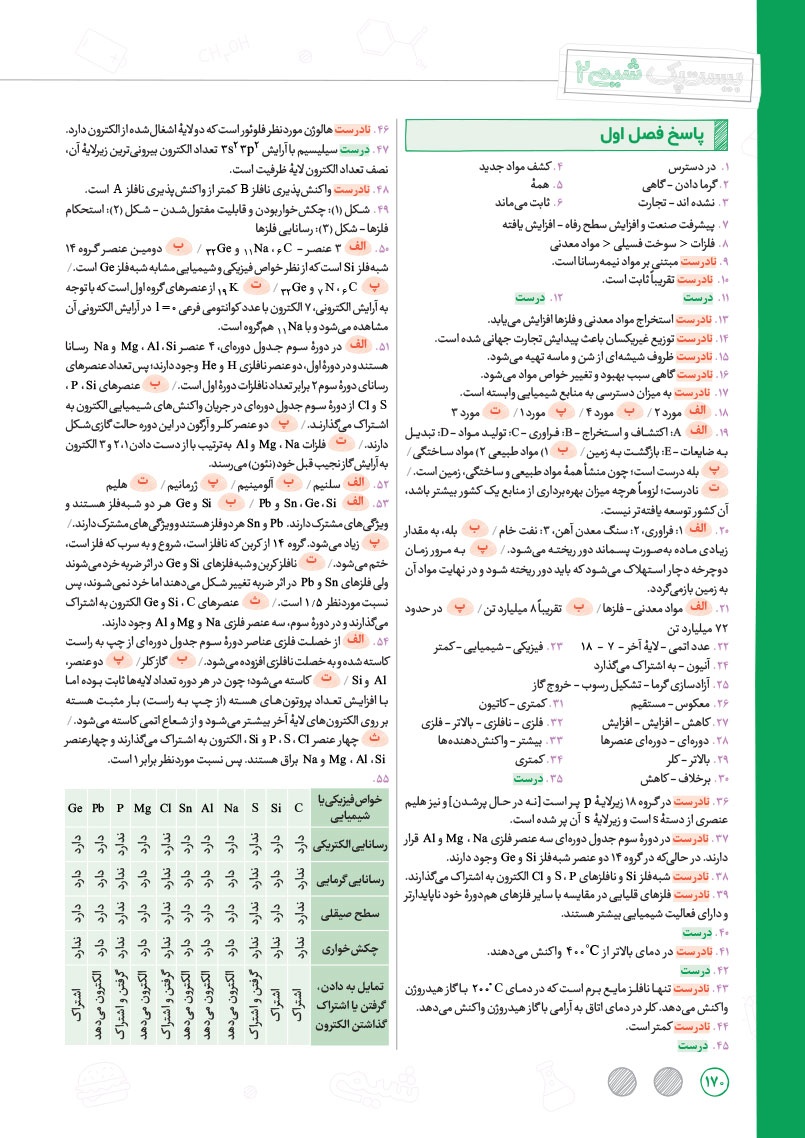 بیست‌پک شیمی ۲
پاسخ فصل اول
۱. در دسترس
۴. کشف مواد جدید
۲. گرما دادن - گاهی
۵. همهٔ
۳. نشده اند - تجارت
۶. ثابت می‌ماند
۷. پیشرفت صنعت و افزایش سطح رفاه - افزایش یافته
۸. فلزات < سوخت فسیلی < مواد معدنی
۹. نادرست مبتنی بر مواد نیمه‌رسانا است.
۱۰. نادرست تقریباً ثابت است.
۱۱. درست
۱۲. درست
۱۳. نادرست استخراج مواد معدنی و فلزها افزایش می‌یابد.
۱۴. نادرست توزیع غیریکسان باعث پیدایش تجارت جهانی شده است.
۱۵. نادرست ظروف شیشه‌ای از شن و ماسه تهیه می‌شود.
۱۶. نادرست گاهی سبب بهبود و تغییر خواص مواد می‌شود.
۱۷. نادرست به میزان دسترسی به منابع شیمیایی وابسته است.
۱۸. الف مورد ۲ / ب مورد ۴ / پ مورد ۱ / ت مورد ۳
۱۹. الف A: اکتشاف و استخراج - B: فراوری - C: تولید مواد - D: تبدیل
به ضایعات - E: بازگشت به زمین / ب ۱) مواد طبیعی ۲) مواد ساختگی /
پ بله درست است؛ چون منشأ همهٔ مواد طبیعی و ساختگی، زمین است. /
ت نادرست؛ لزوماً هرچه میزان بهره‌برداری از منابع یک کشور بیشتر باشد،
آن کشور توسعه یافته‌تر نیست.
۲۰. الف ۱: فراوری، ۲: سنگ معدن آهن، ۳: نفت خام / ب بله، به مقدار
زیادی ماده به‌صورت پسماند دور ریخته می‌شود. / پ به مرور زمان
دوچرخه دچار استهلاک می‌شود که باید دور ریخته شود و در نهایت مواد آن
به زمین بازمی‌گردد.
۲۱. الف مواد معدنی - فلزها / ب تقریباً ۸ میلیارد تن / پ در حدود
۷۲ میلیارد تن
۲۲. عدد اتمی - لایهٔ آخر - ۷ - ۱۸
۲۳. فیزیکی - شیمیایی - کمتر
۲۴. آنیون - به اشتراک می‌گذارد
۲۵. آزادسازی گرما - تشکیل رسوب - خروج گاز
۲۶. معکوس - مستقیم
۳۱. کمتری - کاتیون
۲۷. کاهش - افزایش - افزایش
۳۲. فلزی - نافلزی - بالاتر - فلزی
۲۸. دوره‌ای - دوره‌ای عنصرها
۳۳. بیشتر - واکنش‌دهنده‌ها
۲۹. بالاتر - کلر
۳۴. کمتری
۳۰. برخلاف - کاهش
۳۵. درست
۳۶. نادرست در گروه ۱۸ زیرلایهٔ p پر است [نه در حال پرشدن] و نیز هلیم
عنصری از دستهٔ s است و زیرلایهٔ s آن پر شده است.
۳۷. نادرست در دورهٔ سوم جدول دوره‌ای سه عنصر فلزی Na، Mg و Al قرار
دارند. در حالی‌که در گروه ۱۴ دو عنصر شبه‌فلز Si و Ge وجود دارند.
۳۸. نادرست شبه‌فلز Si و نافلزهای P، S و Cl الکترون به اشتراک می‌گذارند.
۳۹. نادرست فلزهای قلیایی در مقایسه با سایر فلزهای هم‌دورهٔ خود ناپایدارتر
و دارای فعالیت شیمیایی بیشتر هستند.
۴۰. درست
۴۱. نادرست در دمای بالاتر از ۴۰۰°C واکنش می‌دهند.
۴۲. درست
۴۳. نادرست تنها نافلز مایع برم است که در دمای ۲۰۰°C با گاز هیدروژن
واکنش می‌دهد. کلر در دمای اتاق به آرامی با گاز هیدروژن واکنش می‌دهد.
۴۴. نادرست کمتر است.
۴۵. درست
۴۶. نادرست هالوژن موردنظر فلوئور است که دو لایهٔ اشغال‌شده از الکترون دارد.
۴۷. درست سیلیسیم با آرایش ۳s² ۳p² تعداد الکترون بیرونی‌ترین زیرلایهٔ آن،
نصف تعداد الکترون لایهٔ ظرفیت است.
۴۸. نادرست واکنش‌پذیری نافلز B کمتر از واکنش‌پذیری نافلز A است.
۴۹. شکل (۱): چکش‌خواربودن و قابلیت مفتول‌شدن - شکل (۲): استحکام
فلزها - شکل (۳): رسانایی فلزها
۵۰. الف ۳ عنصر - ₆C، ₁₁Na و ₃₂Ge / ب دومین عنصر گروه ۱۴
شبه‌فلز Si است که از نظر خواص فیزیکی و شیمیایی مشابه شبه‌فلز Ge است. /
پ ₆C، ₇N و ₃₂Ge / ت ₁₉K از عنصرهای گروه اول است که با توجه
به آرایش الکترونی، ۷ الکترون با عدد کوانتومی فرعی l = ۰ در آرایش الکترونی آن
مشاهده می‌شود و با ₁₁Na هم‌گروه است.
۵۱. الف در دورهٔ سوم جدول دوره‌ای، ۴ عنصر Mg، Al، Si و Na رسانا
هستند و در دورهٔ اول، دو عنصر نافلزی H و He وجود دارند؛ پس تعداد عنصرهای
رسانای دورهٔ سوم ۲ برابر تعداد نافلزات دورهٔ اول است. / ب عنصرهای P، Si،
S و Cl از دورهٔ سوم جدول دوره‌ای در جریان واکنش‌های شیمیایی الکترون به
اشتراک می‌گذارند. / پ دو عنصر کلر و آرگون در این دوره حالت گازی‌شکل
دارند. / ت فلزات Mg، Na و Al به‌ترتیب با از دست دادن ۱، ۲ و ۳ الکترون
به آرایش گاز نجیب قبل خود (نئون) می‌رسند.
۵۲. الف سلنیم / ب آلومینیم / پ ژرمانیم / ت هلیم
۵۳. الف Sn، Ge، Si و Pb / ب Si و Ge هر دو شبه‌فلز هستند و
ویژگی‌های مشترک دارند. Pb و Sn هر دو فلز هستند و ویژگی‌های مشترک دارند. /
پ زیاد می‌شود. گروه ۱۴ از کربن که نافلز است، شروع و به سرب که فلز است،
ختم می‌شود. / ت نافلز کربن و شبه‌فلزهای Si و Ge در اثر ضربه خرد می‌شوند
ولی فلزهای Sn و Pb در اثر ضربه تغییر شکل می‌دهند اما خرد نمی‌شوند، پس
نسبت موردنظر ۱/۵ است. / ث عنصرهای Si، C و Ge الکترون به اشتراک
می‌گذارند و در دورهٔ سوم، سه عنصر فلزی Na و Mg و Al وجود دارند.
۵۴. الف از خصلت فلزی عناصر دورهٔ سوم جدول دوره‌ای از چپ به راست
کاسته شده و به خصلت نافلزی افزوده می‌شود. / ب گاز کلر / پ دو عنصر،
Al و Si / ت کاسته می‌شود؛ چون در هر دوره تعداد لایه‌ها ثابت بوده اما
با افزایش تعداد پروتون‌های هسته (از چپ به راست) بار مثبت هسته
بر روی الکترون‌های لایهٔ آخر بیشتر می‌شود و از شعاع اتمی کاسته می‌شود. /
ث چهار عنصر P، S، Cl و Si، الکترون به اشتراک می‌گذارند و چهار عنصر
Mg، Al، Si و Na براق هستند. پس نسبت موردنظر برابر ۱ است.
۵۵.
خواص فیزیکی یا شیمیایی C Si S Na Al Sn Cl Mg P Pb Ge
رسانایی الکتریکی دارد دارد ندارد دارد دارد دارد ندارد دارد ندارد دارد دارد
رسانایی گرمایی ندارد دارد ندارد دارد دارد دارد ندارد دارد ندارد دارد دارد
سطح صیقلی ندارد دارد ندارد دارد دارد دارد ندارد دارد ندارد دارد دارد
چکش‌خواری ندارد ندارد ندارد دارد دارد دارد ندارد دارد ندارد دارد ندارد
تمایل به دادن، گرفتن یا اشتراک گذاشتن الکترون اشتراک اشتراک گرفتن و اشتراک الکترون می‌دهد الکترون می‌دهد الکترون می‌دهد گرفتن و اشتراک الکترون می‌دهد گرفتن و اشتراک الکترون می‌دهد اشتراک
۱۷۰
شیمی
CH₃OH